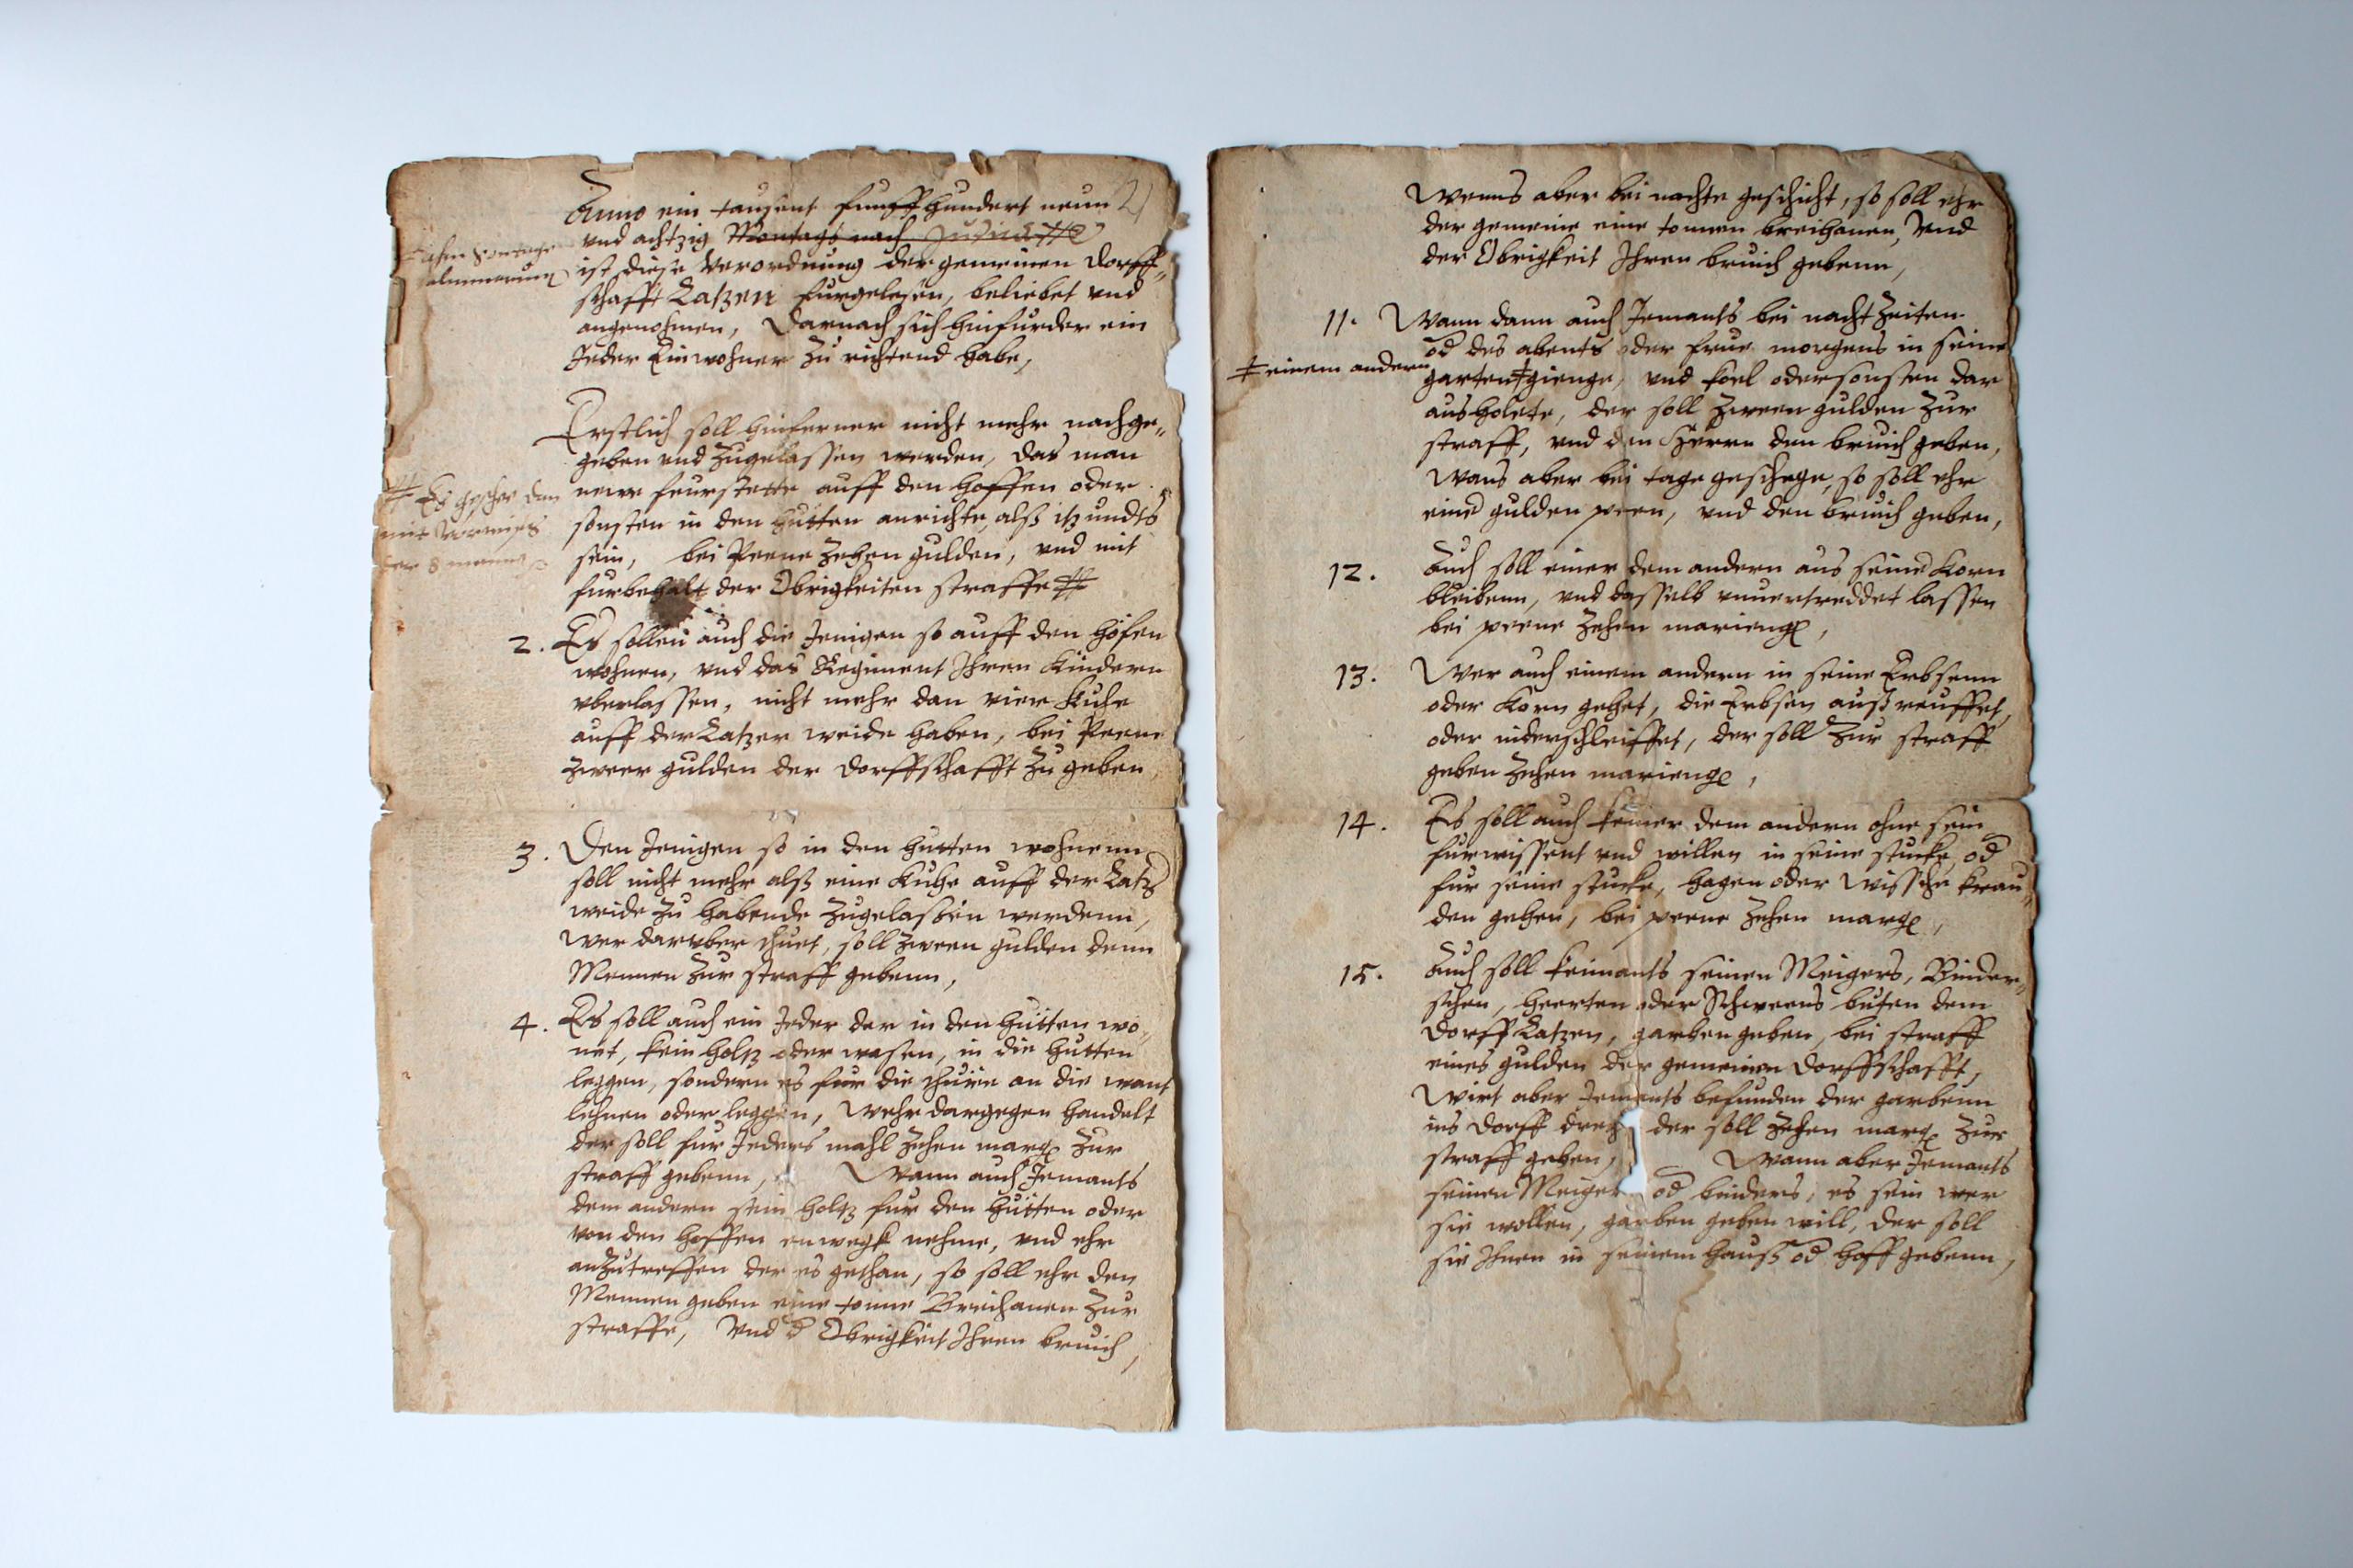 Anno ein tausent funffhundert neun
und achtzig Montags nach Judica
ist diese Verordnung der gemeinen Dorff„
schafft Latzen furgelesen, beliebet und
angenohmen, Darnach sich hinfurder ein
Jeder Einwohner zu richtend habe,
Erstlich soll hinferner nicht mehr nachge„
geben und zugelassen werden, das man
newe feurstette auff den hoffen oder
sonsten in den hütten anrichte, alß itzundts
sein, bei Peene zehen gulden, und mit
furbehalt der Obrigkeiten straffe #
# Es geschee dan
mit
2. Es sollen auch die Jenigen so auff den höfen
wohnen, und das Regiment Ihren Kindern
vberlassen, nicht mehr dan vier Kuhe
auff der Latzer weide haben, bei Peene
zweer gulden der Dorffschafft zu geben,
3. Den Jenigen so in den hutten wohnenn
soll nicht mehr alß eine Kuhe auff der Latz
weide zu habende zugelassen werdenn,
Wer darvber thuet, soll zween gulden denn
Mennen zur straff gebenn,
4. Es soll auch ein Jeder der in den hütten wo„
net, kein holtz oder wasen, in die hutten
leggen, sondern es fur die thüre an die want
lehnen oder leggen, Wehr dargegen handelt
der soll fur Jeders mahl zehen marg zur
straff gebenn, Wann auch Jemants
dem andern sein holtz fur den hütten oder
von den hoffen enwegk nehme, und ehr
anzutreffen der es gethan, so soll ehr den
Mennen geben eine tonne Breihanen zur
straffe, Und d Obrigkeit Ihren bruich,
Wenns aber bei nachte geschicht, so soll ehr
der gemeine eine tonnen breihanen, Und
der Obrigkeit Ihren bruich gebenn,
11. Wann dann auch Jemants bei nacht zeiten
od des abents oder frue morgens in seine
‡ einem andern
garten ‡ gienge, und koel oder sonsten dar
aus holete, der soll zween gulden zur
straff, und den Herrn den bruich geben,
Wans aber bei tage geschege, so soll ehr
eind gulden peen, und den bruich geben,
12. Auch soll einer dem andern aus seind Korn
bleibenn, und dasselb unuertreddet lassen
bei peene zehen marieng,
13. Wer auch einem andern in seine Erbsenn
oder Korn gehet, die Erbsen auß reuffet,
oder niderschleiffet, der soll zur straff
geben zehen marieng,
14. Es soll auch keiner dem andern ohne sein
furwissent und willen in seine stucke, od
fur seine stucke, hagen oder Wissche krau„
den gehen, bei peene zehen marg,
15. Auch soll keimants seinen Meigers, Binder„
schen, heerten oder Schweens buten dem
dorff Latzen, garben geben, bei straff
eines gulden der gemeinen Dorffschafft,
Wirt aber Jemants befunden der garbenn
ins dorff der soll zehen marg zur
straff geben, Wann aber Jemants
seinen Meiger od binders, es sein wer
sie wollen, garben geben will, der soll
sie Ihnen in seinem hauß od hoff gebenn,